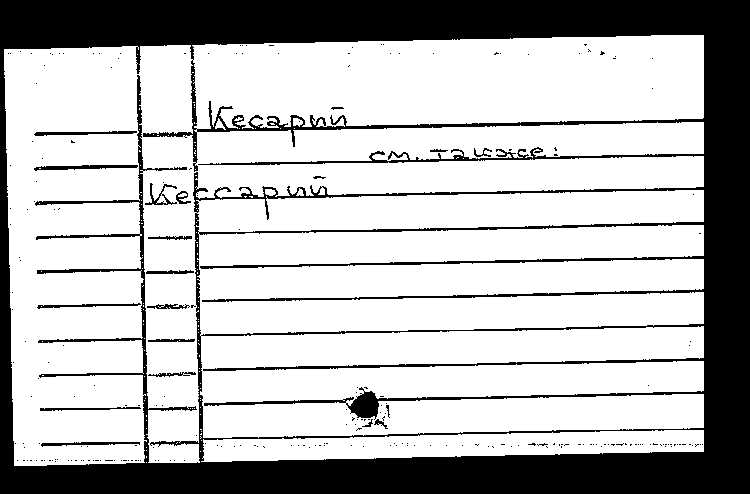 Кесарий
см. также:
Кессарий